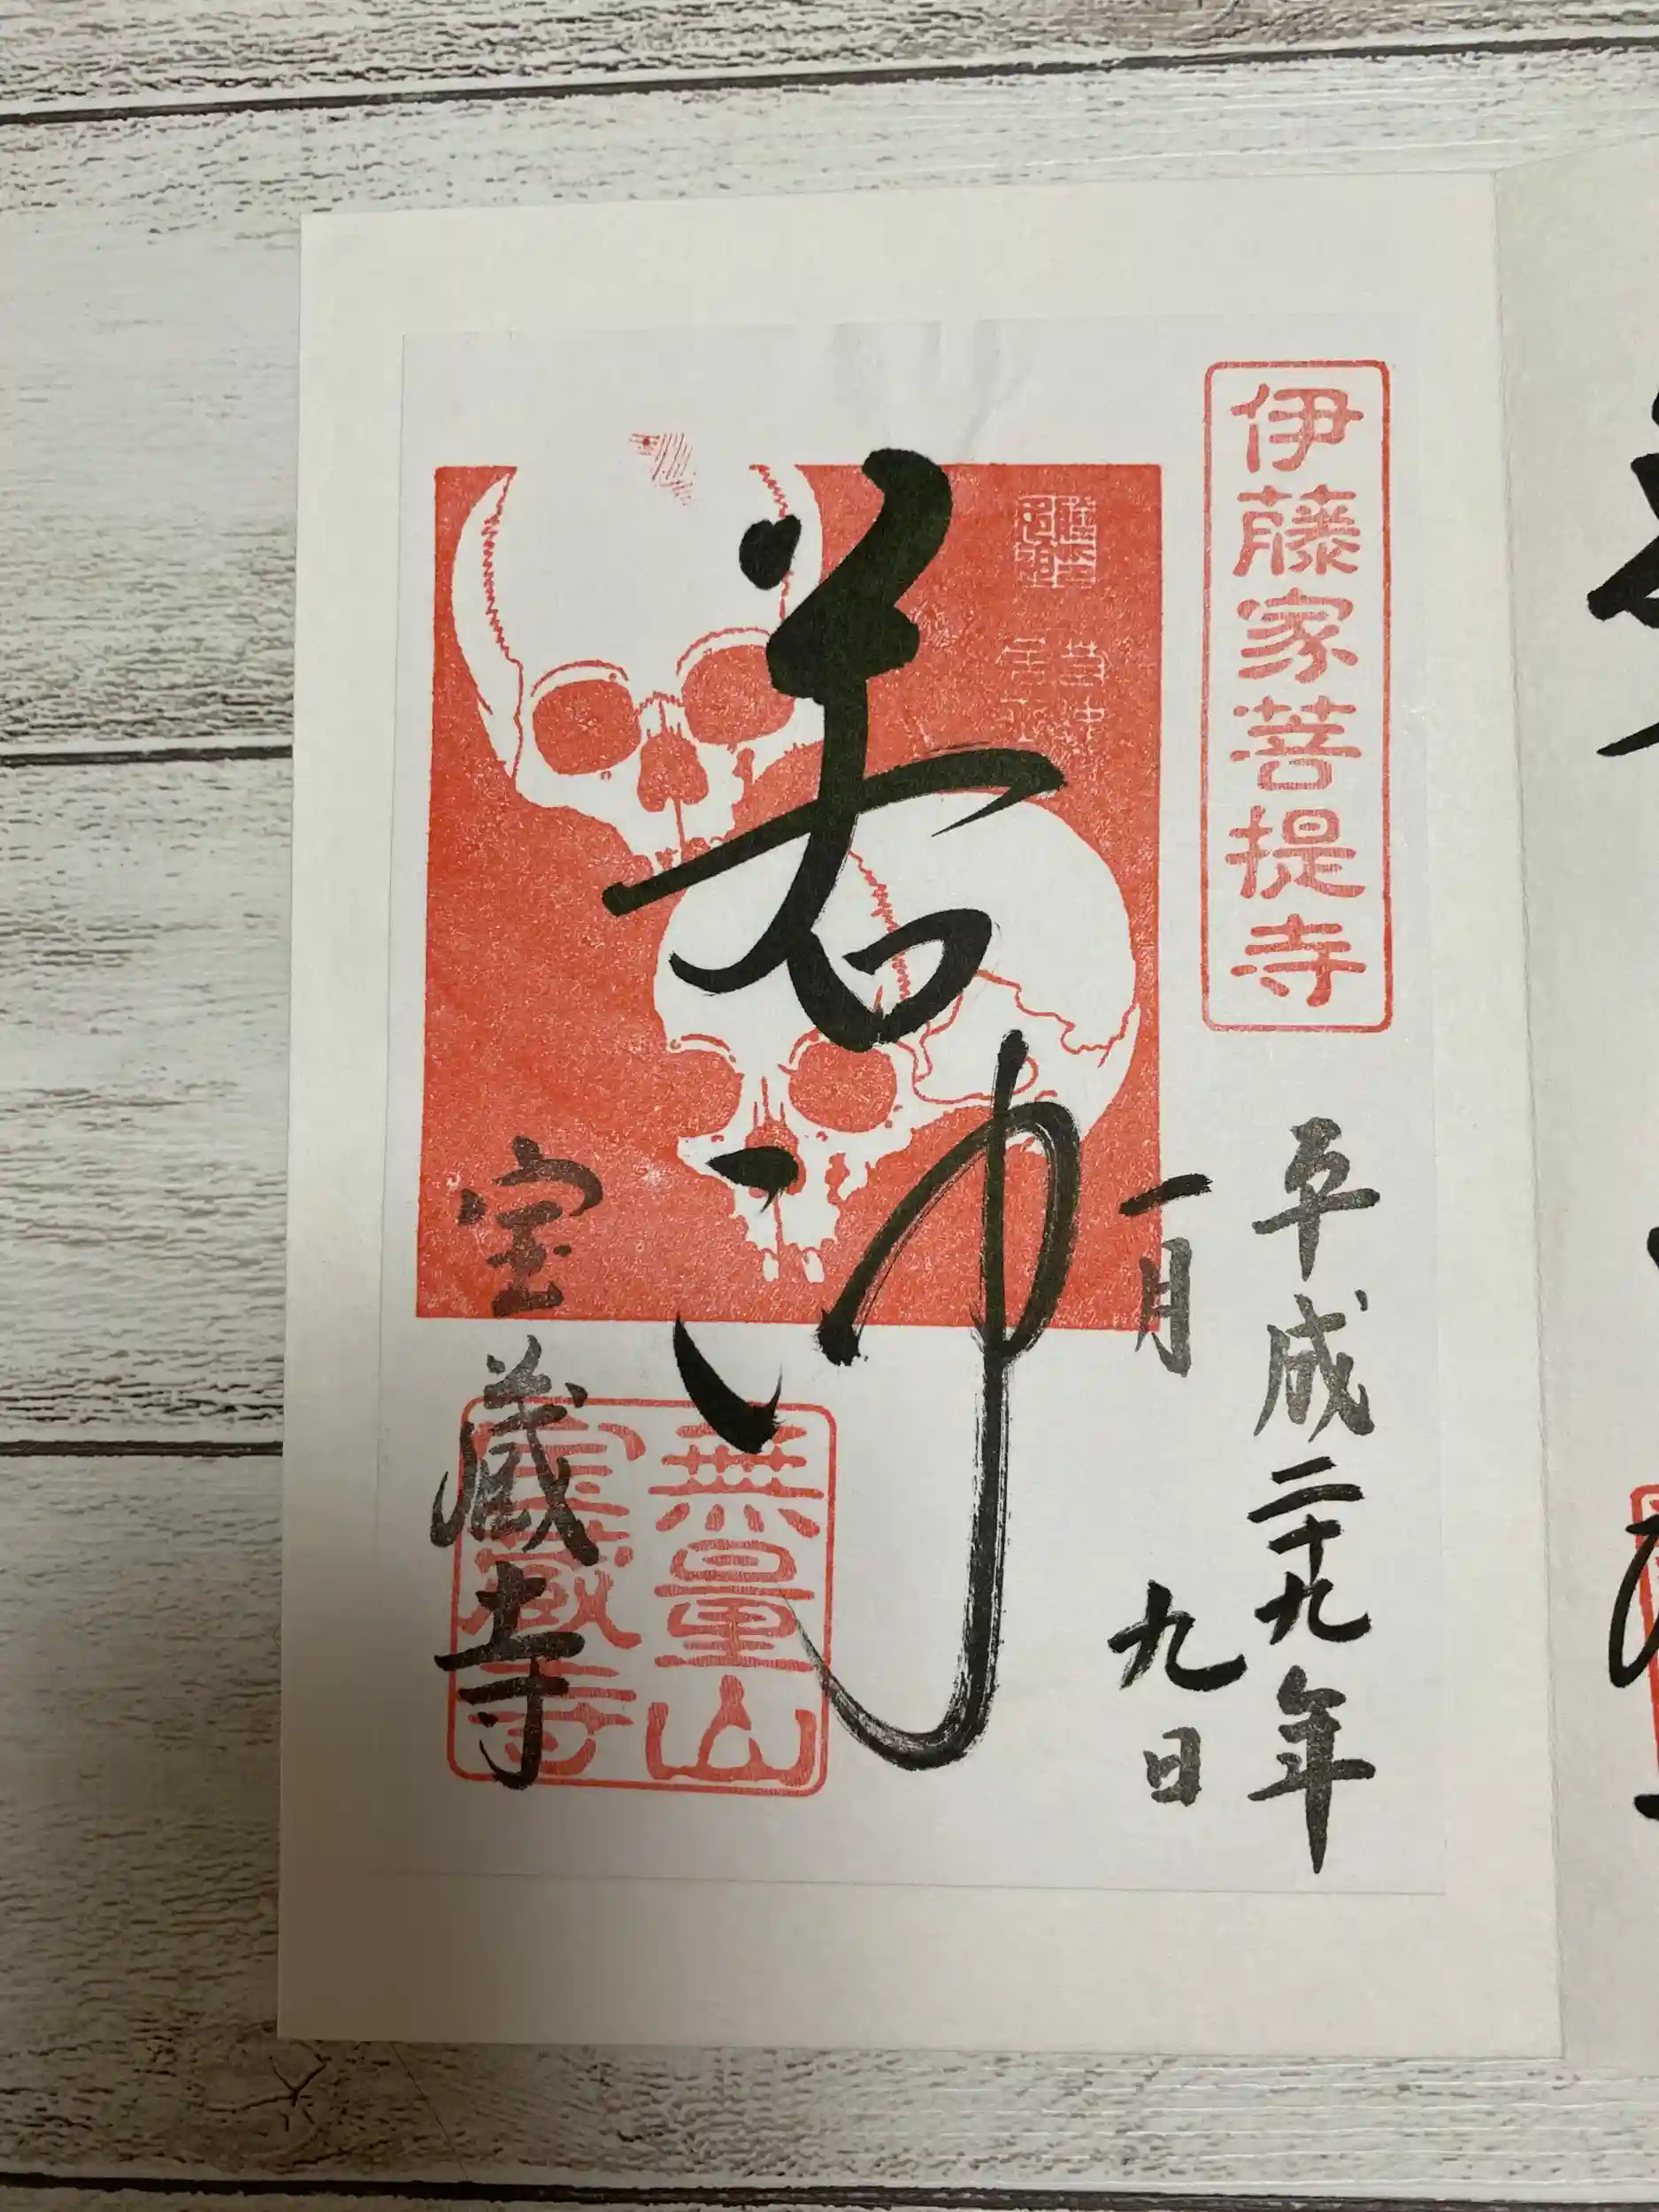 伊藤家菩提寺
平成二十九年
一月九日
若冲
宝蔵寺
無量山
宝蔵寺